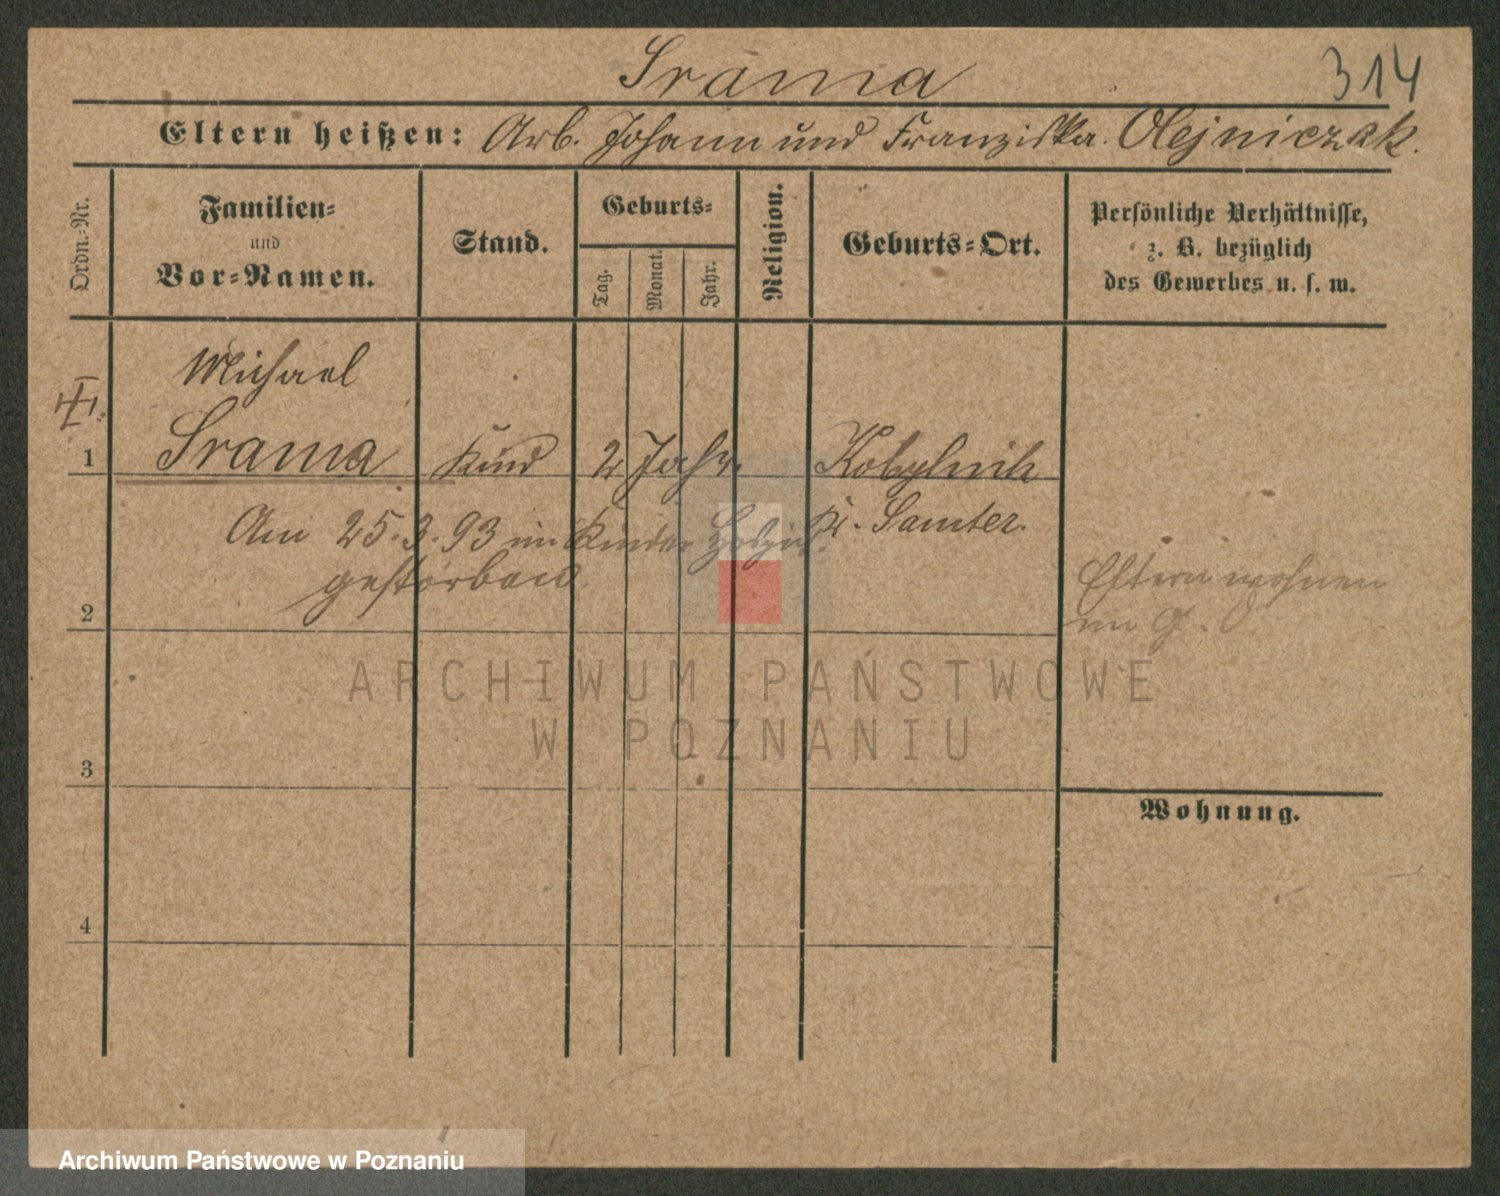 Srama
314
Eltern heißen: Arb. Johann und Franziska Olejniczak.
Ordn.-Nr.
Familien-
und
Vor-Namen.
Stand.
Geburts-
Tag.
Monat.
Jahr.
Religion.
Geburts-Ort.
Persönliche Verhältnisse,
z. B. bezüglich
des Gewerbes u. s. w.
Michael
1 Srama Kind 2 Jahr. Kobylnik
Kr. Samter.
Am 25.3.93 im Kinder Hospit.
gestorben.
Eltern wohnen
im
2
3
Wohnung.
4
ARCHIWUM PAŃSTWOWE
W POZNANIU
Archiwum Państwowe w Poznaniu